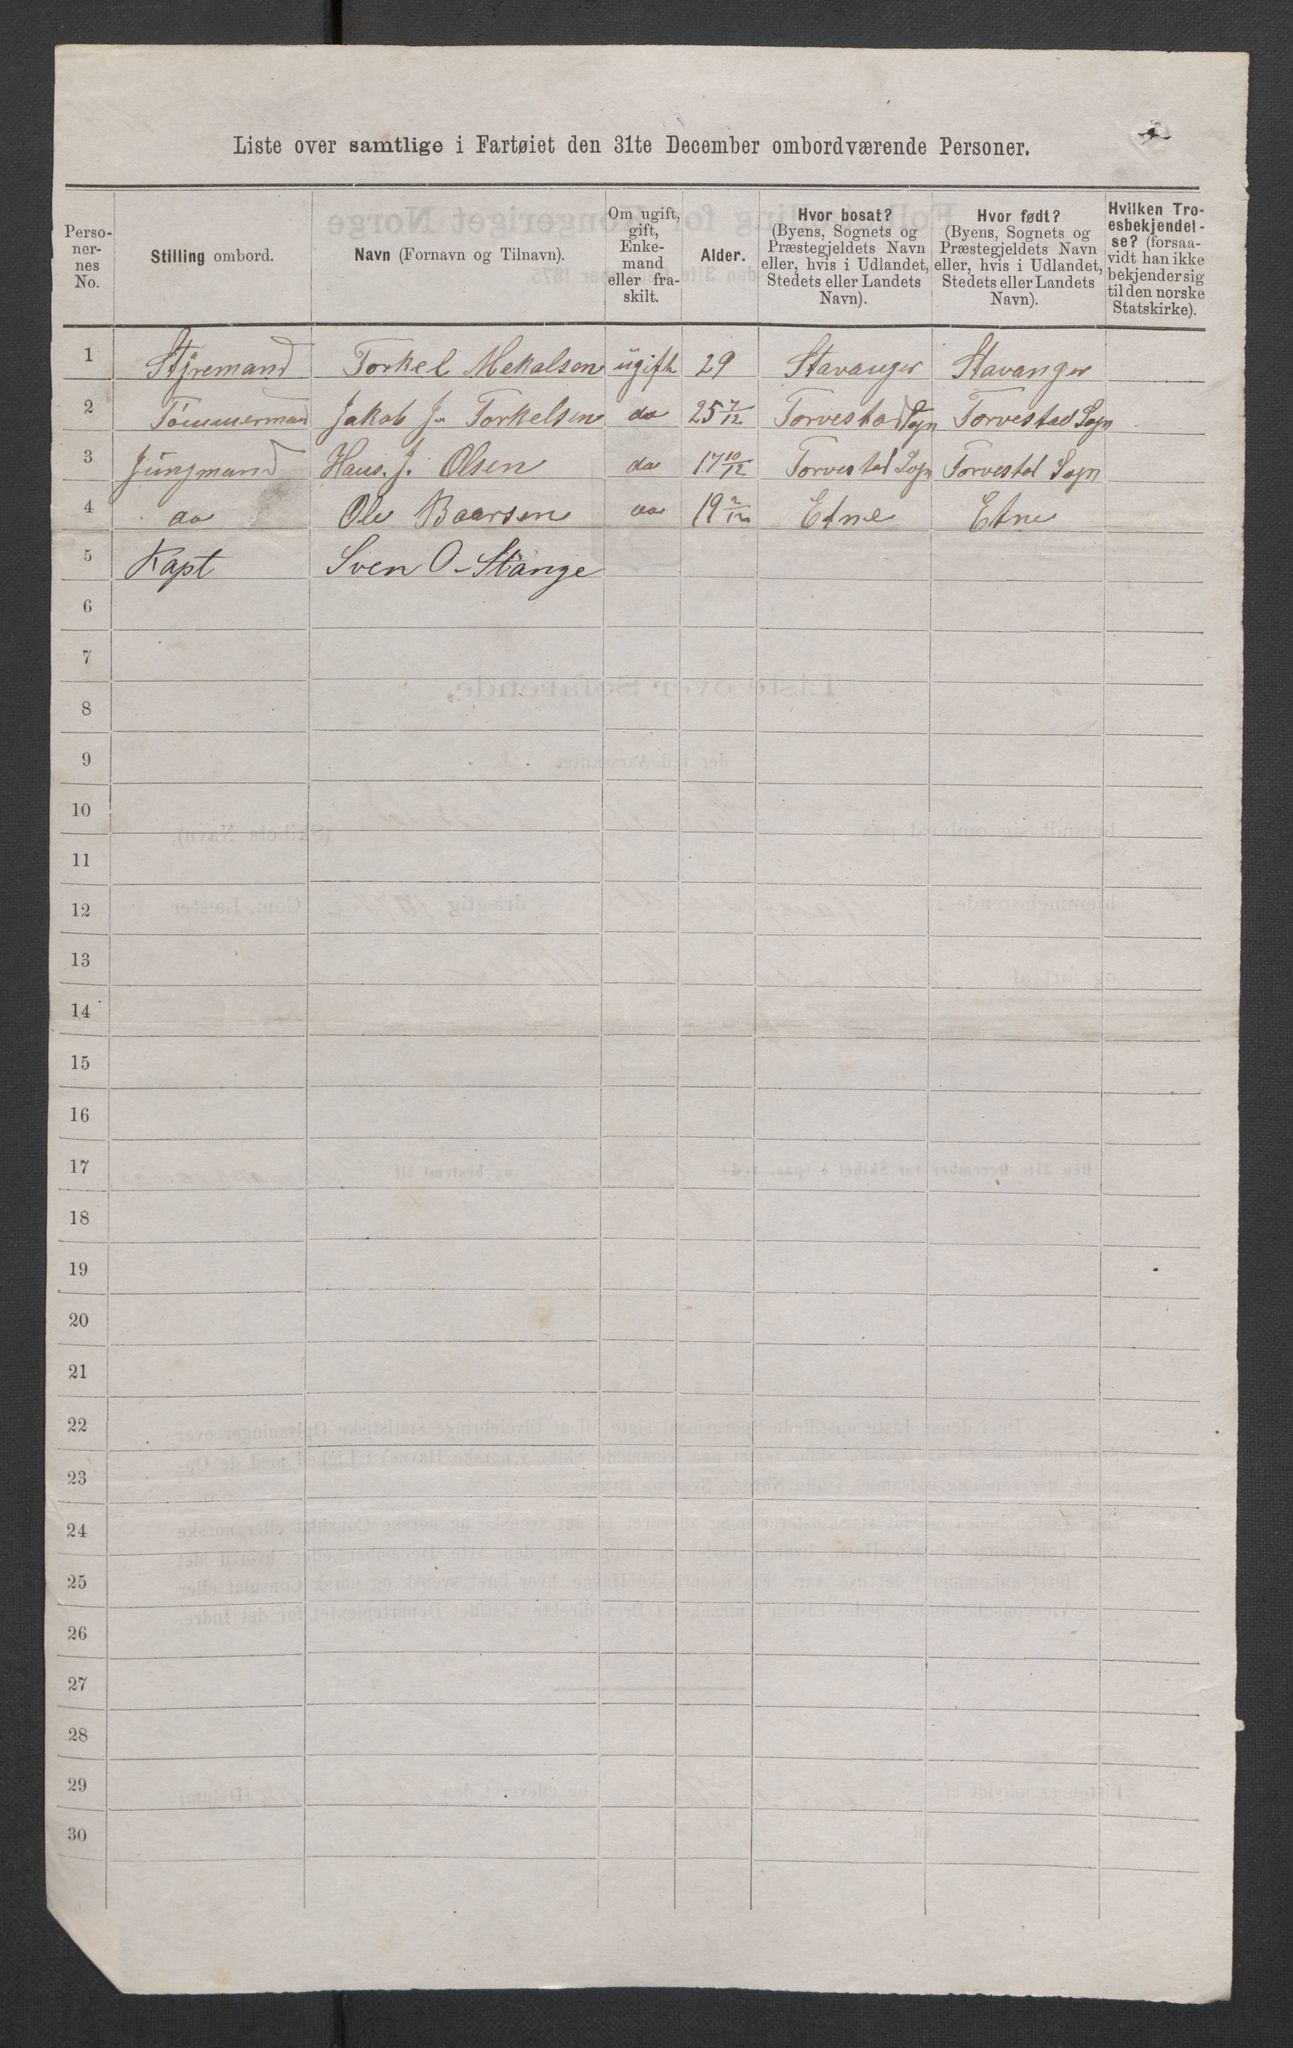 Liste over samtlige i Fartøiet den 31te December ombordværende Personer.
Perso-nernes No. | Stilling ombord. | Navn (Fornavn og Tilnavn). | Om ugift, gift, Enke-mand eller fra-skilt. | Alder. | Hvor bosat? (Byens, Sognets og Præstegjeldets Navn eller, hvis i Udlandet, Stedets eller Landets Navn). | Hvor født? (Byens, Sognets og Præstegjeldets Navn eller, hvis i Udlandet, Stedets eller Landets Navn). | Hvilken Tro-esbekjendel-se? (forsaa-vidt han ikke bekjender sig til den norske Statskirke).
1 Styremand Torkel Mekalsen ugift 29 Stavanger Stavanger
2 Tömmermand Jakob J. Torkelsen do 25 7/12 Torvestad Sogn Torvestad Sogn
3 Jüngmand Hans. J. Olsen do 17 10/12 Torvestad Sogn Torvestad Sogn
4 do Ole Baarsen do 19 2/12 Etne Etne
5 Kapt Sven O. Stange
6
7
8
9
10
11
12
13
14
15
16
17
18
19
20
21
22
23
24
25
26
27
28
29
30